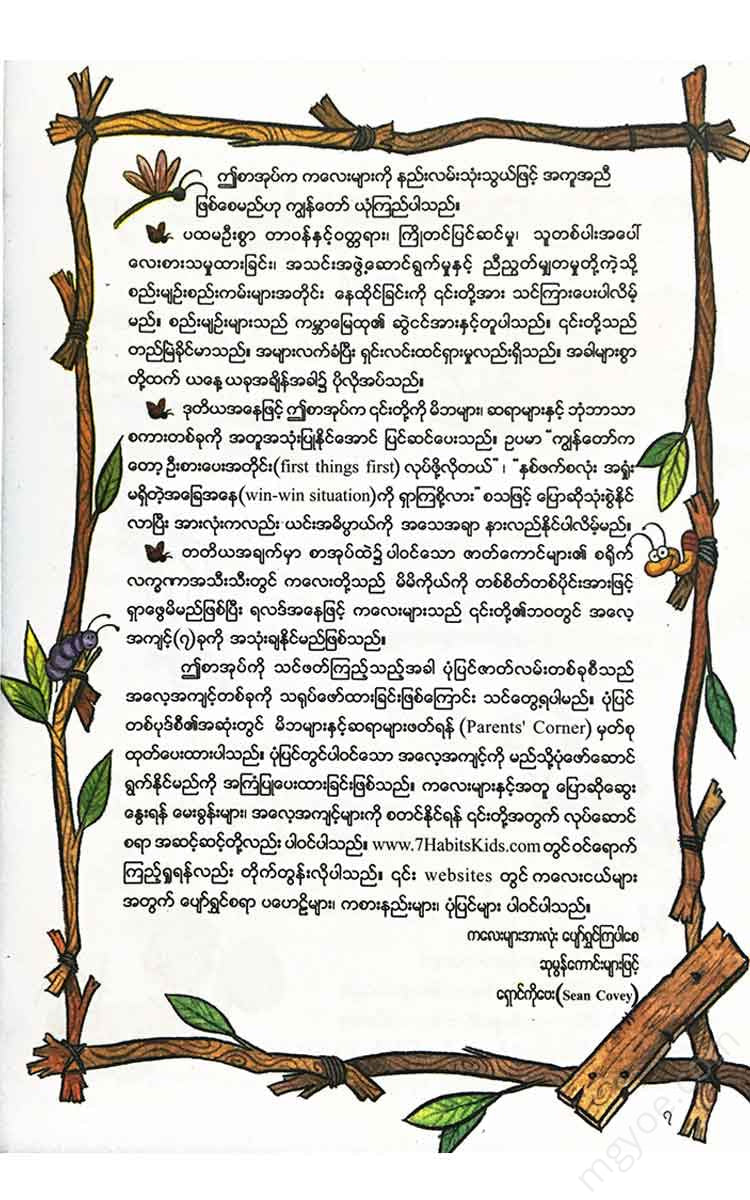 ဤစာအုပ်က ကလေးများကို နည်းလမ်းသုံးသွယ်ဖြင့် အကူအညီ
ဖြစ်စေမည်ဟု ကျွန်တော် ယုံကြည်ပါသည်။
ပထမဦးစွာ တာဝန်နှင့်ဝတ္တရား၊ ကြိုတင်ပြင်ဆင်မှု၊ သူတစ်ပါးအပေါ်
လေးစားသမှုထားခြင်း၊ အသင်းအဖွဲ့ဆောင်ရွက်မှုနှင့် ညီညွတ်မျှတမှုတို့ကဲ့သို့
စည်းမျဉ်းစည်းကမ်းများအတိုင်း နေထိုင်ခြင်းကို ၎င်းတို့အား သင်ကြားပေးပါလိမ့်
မည်။ စည်းမျဉ်းများသည် ကမ္ဘာမြေထု၏ ဆွဲငင်အားနှင့်တူပါသည်။ ၎င်းတို့သည်
တည်မြဲခိုင်မာသည်။ အများလက်ခံပြီး ရှင်းလင်းထင်ရှားမှုလည်းရှိသည်။ အခါများစွာ
တို့ထက် ယနေ့ ယခုအချိန်အခါ၌ ပိုလိုအပ်သည်။
ဒုတိယအနေဖြင့် ဤစာအုပ်က ၎င်းတို့ကို မိဘများ၊ ဆရာများနှင့် ဘုံဘာသာ
စကားတစ်ခုကို အတူအသုံးပြုနိုင်အောင် ပြင်ဆင်ပေးသည်။ ဥပမာ "ကျွန်တော်က
တော့ ဦးစားပေးအတိုင်း(first things first) လုပ်ဖို့လိုတယ်" ၊ "နှစ်ဖက်စလုံး အရှုံး
မရှိတဲ့အခြေအနေ(win-win situation)ကို ရှာကြစို့လား" စသဖြင့် ပြောဆိုသုံးစွဲနိုင်
လာပြီး အားလုံးကလည်း ယင်းအဓိပ္ပာယ်ကို အသေအချာ နားလည်နိုင်ပါလိမ့်မည်။
တတိယအချက်မှာ စာအုပ်ထဲ၌ ပါဝင်သော ဇာတ်ကောင်များ၏ စရိုက်
လက္ခဏာအသီးသီးတွင် ကလေးတို့သည် မိမိကိုယ်ကို တစ်စိတ်တစ်ပိုင်းအားဖြင့်
ရှာဖွေမိမည်ဖြစ်ပြီး ရလဒ်အနေဖြင့် ကလေးများသည် ၎င်းတို့၏ဘဝတွင် အလေ့
အကျင့်(၇)ခုကို အသုံးချနိုင်မည်ဖြစ်သည်။
ဤစာအုပ်ကို သင်ဖတ်ကြည့်သည့်အခါ ပုံပြင်ဇာတ်လမ်းတစ်ခုစီသည်
အလေ့အကျင့်တစ်ခုကို သရုပ်ဖော်ထားခြင်းဖြစ်ကြောင်း သင်တွေ့ရပါမည်။ ပုံပြင်
တစ်ပုဒ်စီ၏အဆုံးတွင် မိဘများနှင့်ဆရာများဖတ်ရန် (Parents' Corner) မှတ်စု
ထုတ်ပေးထားပါသည်။ ပုံပြင်တွင်ပါဝင်သော အလေ့အကျင့်ကို မည်သို့ပုံဖော်ဆောင်
ရွက်နိုင်မည်ကို အကြံပြုပေးထားခြင်းဖြစ်သည်။ ကလေးများနှင့်အတူ ပြောဆိုဆွေး
နွေးရန် မေးခွန်းများ၊ အလေ့အကျင့်များကို စတင်နိုင်ရန် ၎င်းတို့အတွက် လုပ်ဆောင်
စရာ အဆင့်ဆင့်တို့လည်း ပါဝင်ပါသည်။ www.7HabitsKids.com တွင် ဝင်ရောက်
ကြည့်ရှုရန်လည်း တိုက်တွန်းလိုပါသည်။ ၎င်း websites တွင် ကလေးငယ်များ
အတွက် ပျော်ရွှင်စရာ ပဟေဠိများ၊ ကစားနည်းများ၊ ပုံပြင်များ ပါဝင်ပါသည်။
ကလေးများအားလုံး ပျော်ရွှင်ကြပါစေ
ဆုမွန်ကောင်းများဖြင့်
ရှောင်ကိုဗေး(Sean Covey)
၇
mgyoe.com